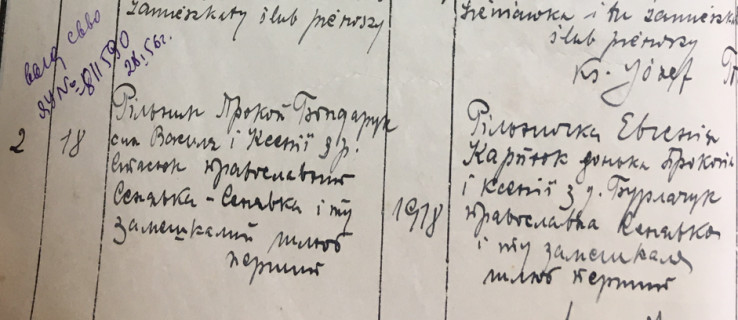 zamieszkały ślub pierwszy
Sieniawka i tu zamieszka
ślub pierwszy
Ks. Józef
ЯУ № 811590
28.I.56г.
2
18
Рільник Прокой Бондарук
син Василя і Ксенії з р.
Стасюк православний
Сенявка - Сенявка і ту
замешкалий шлюб
перший
1918
Рільничка Евгенія
Карпюк донька Прокопа
і Ксенії з д. Бурлачук
православна Сенявка
і ту замешкала
шлюб перший